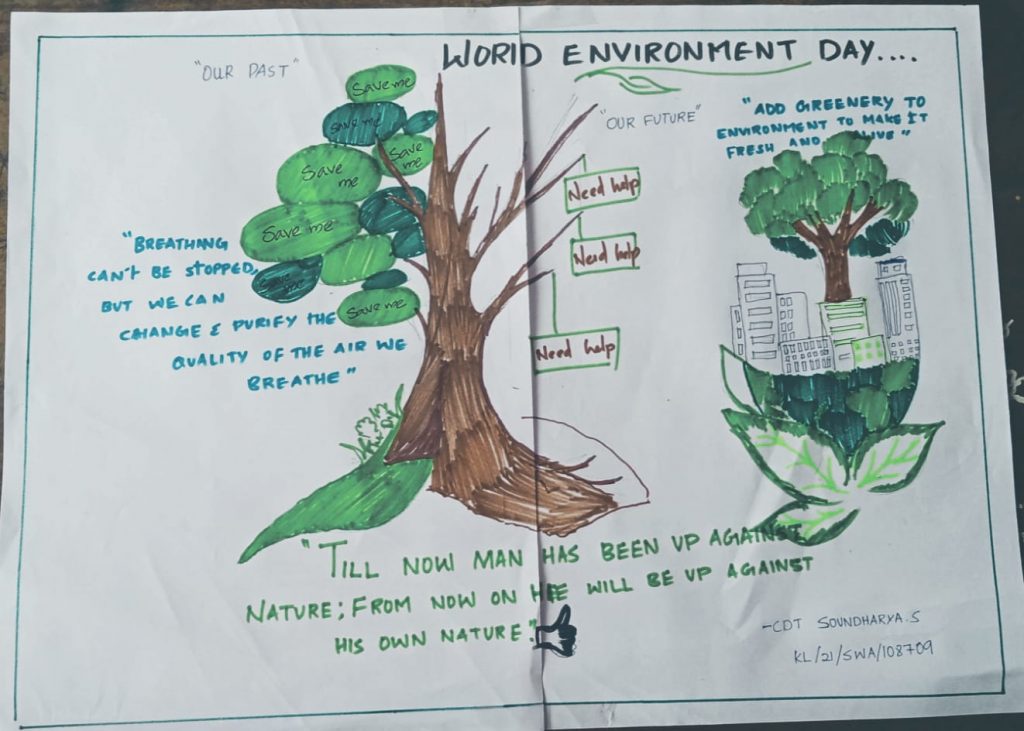 WORLD ENVIRONMENT DAY....
"OUR PAST"
Save me
Save me
Save me
Save
me
Save me
Save
me
Save me
"OUR FUTURE"
Need help
Need help
Need help
"ADD GREENERY TO
ENVIRONMENT TO MAKE IT
FRESH AND ALIVE"
"BREATHING
CAN'T BE STOPPED,
BUT WE CAN
CHANGE & PURIFY THE
QUALITY OF THE AIR WE
BREATHE"
"TILL NOW MAN HAS BEEN UP AGAINST
NATURE; FROM NOW ON HE WILL BE UP AGAINST
HIS OWN NATURE."
-CDT SOUNDHARYA.S
KL/21/SWA/108709